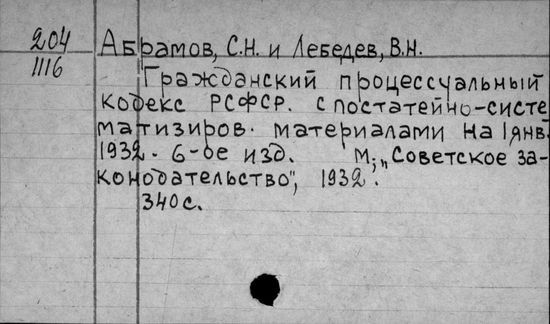 204
1116
Абрамов, С.Н. и Лебедев, В.Н.
Гражданский процессуальный
кодекс РСФСР. с постатейно-систе-
матизиров. материалами на 1 янв.
1932. 6-ое изд. М., „Советское за-
конодательство", 1932.
340 с.